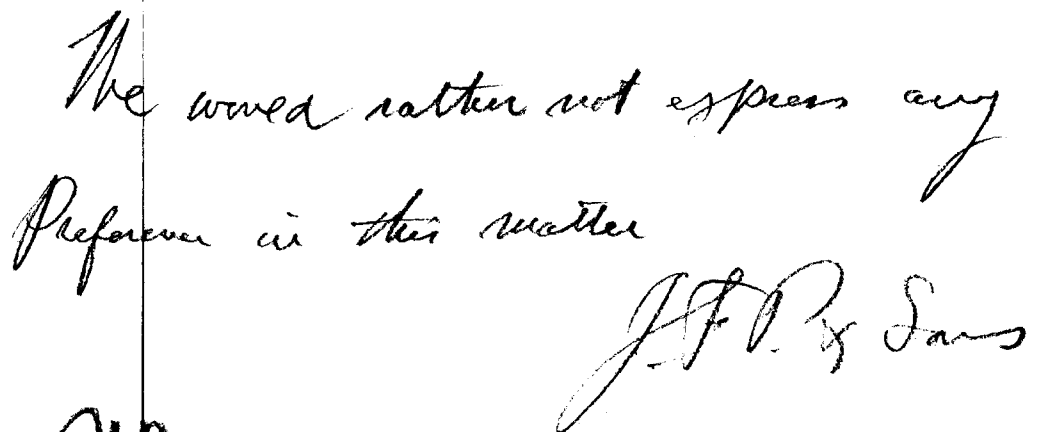 We would rather not express any
Preference in this matter
J. F. P. & Sons